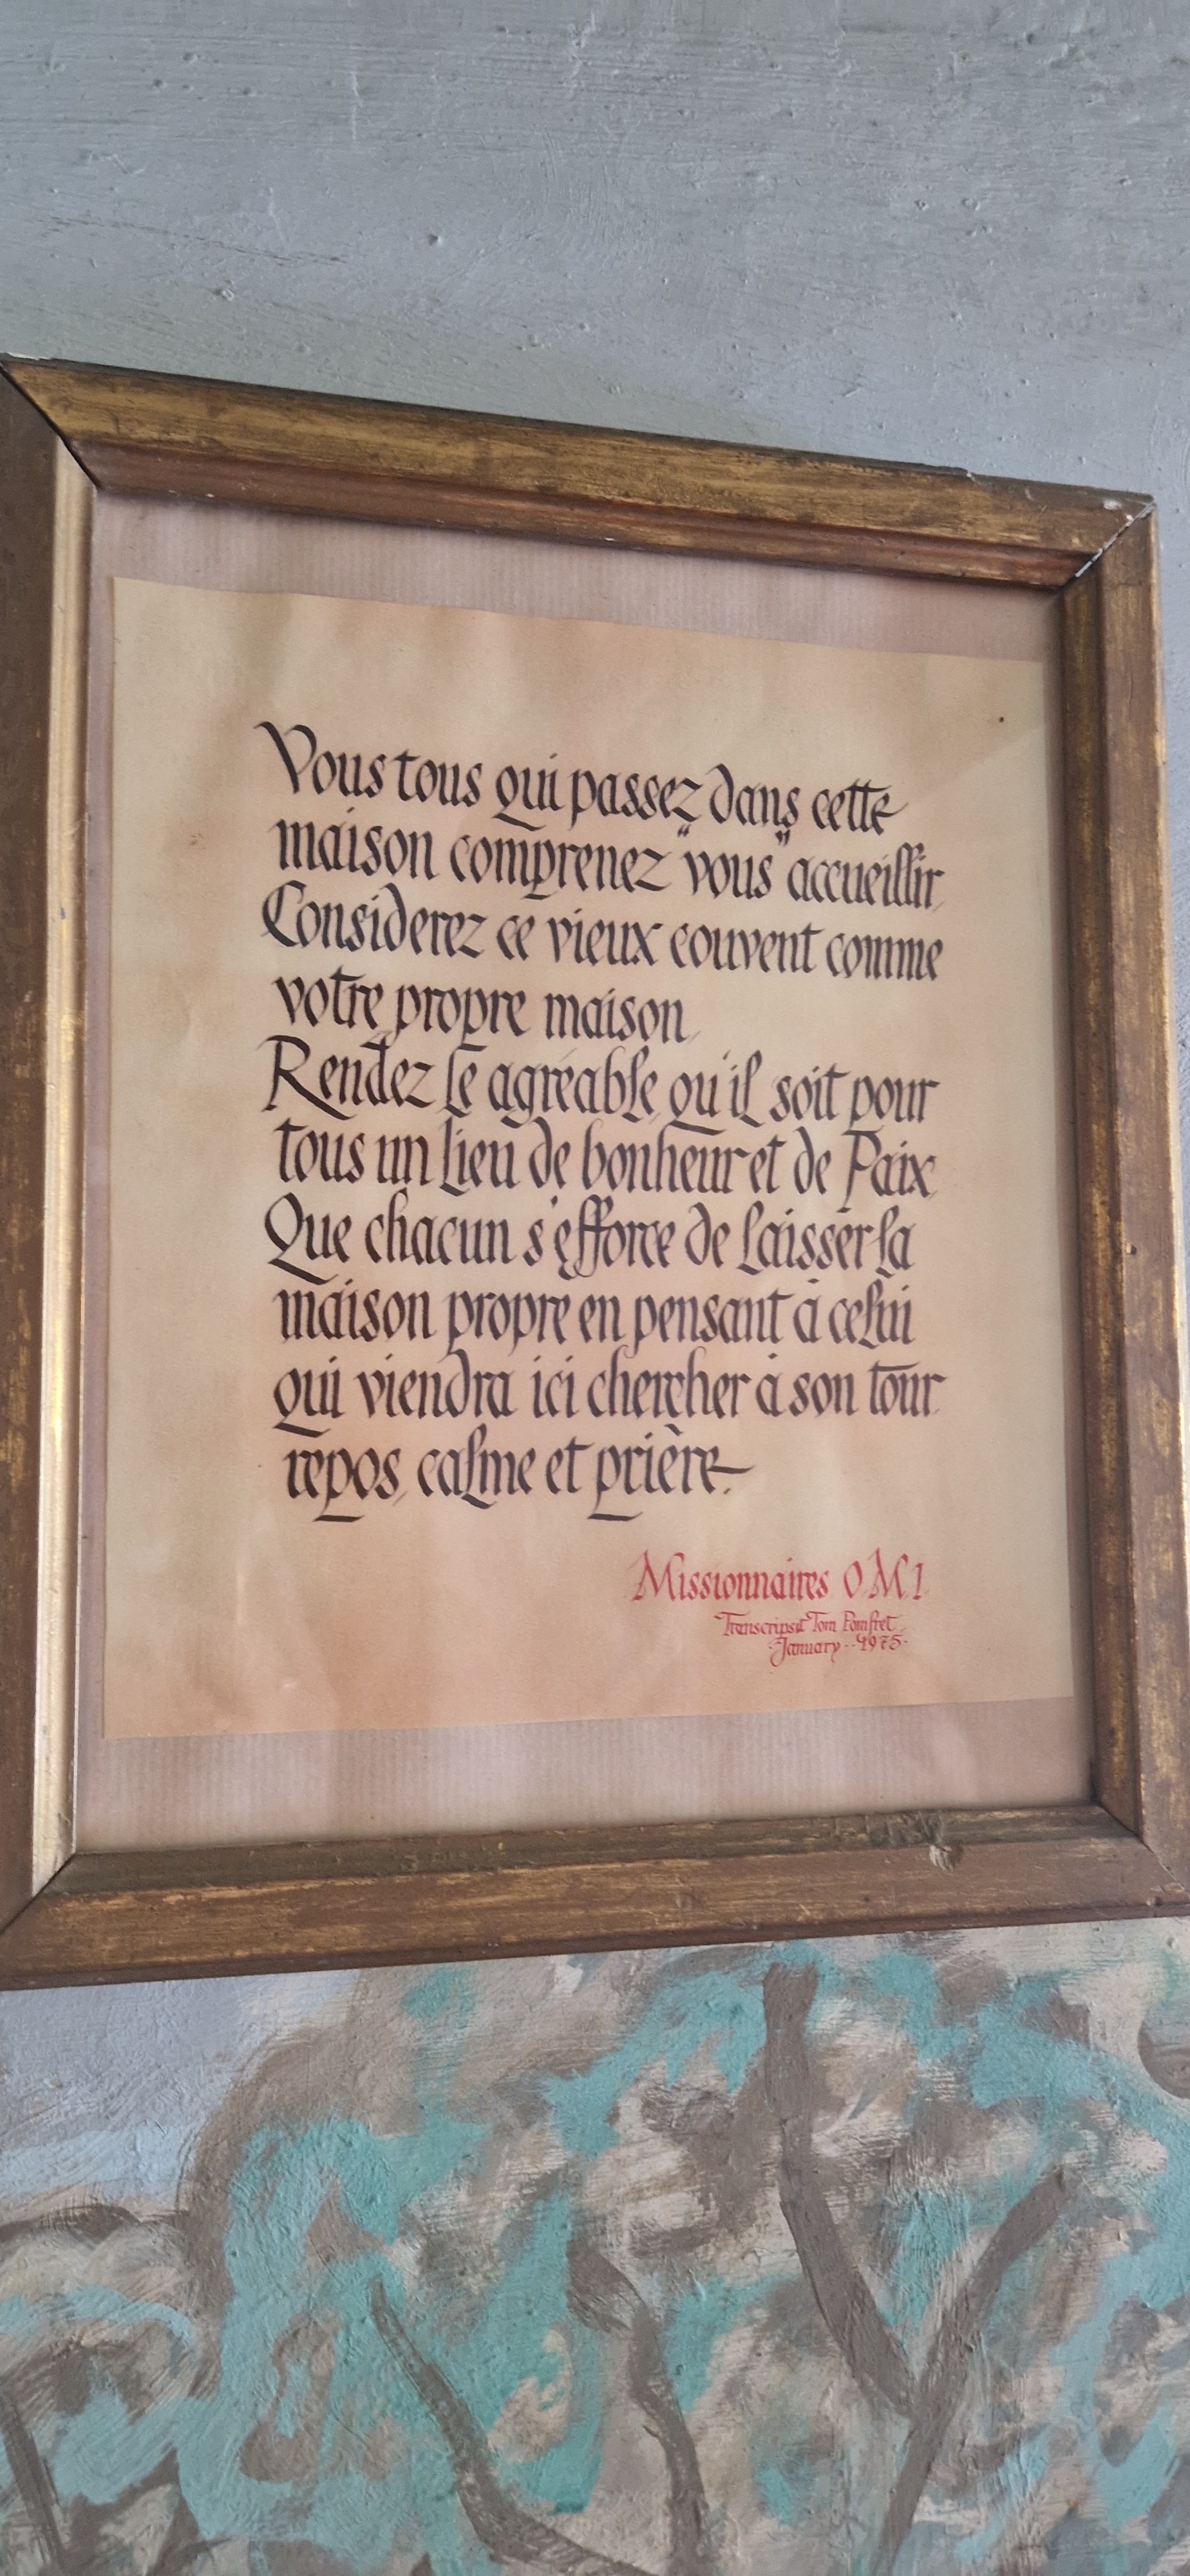 Vous tous qui passez dans cette
maison comprenez "vous" accueillir.
Considerez ce vieux couvent comme
votre propre maison.
Rendez le agréable, qu'il soit pour
tous un lieu de bonheur et de Paix.
Que chacun s'efforce de laisser la
maison propre en pensant à celui
qui viendra ici chercher à son tour
repos, calme et prière.
Missionnaires O.M.I.
Transcripsit Tom Pomfret
January - 1975.